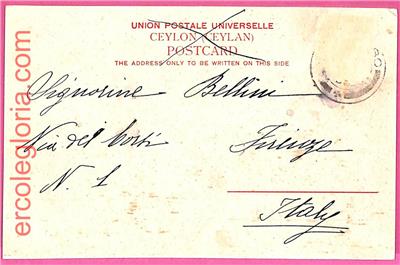 UNION POSTALE UNIVERSELLE
CEYLON (CEYLAN)
POSTCARD
THE ADDRESS ONLY TO BE WRITTEN ON THIS SIDE
Signorine Bellini
Via dei Corti
N. 1
Firenze
Italy
ercolegloria.com